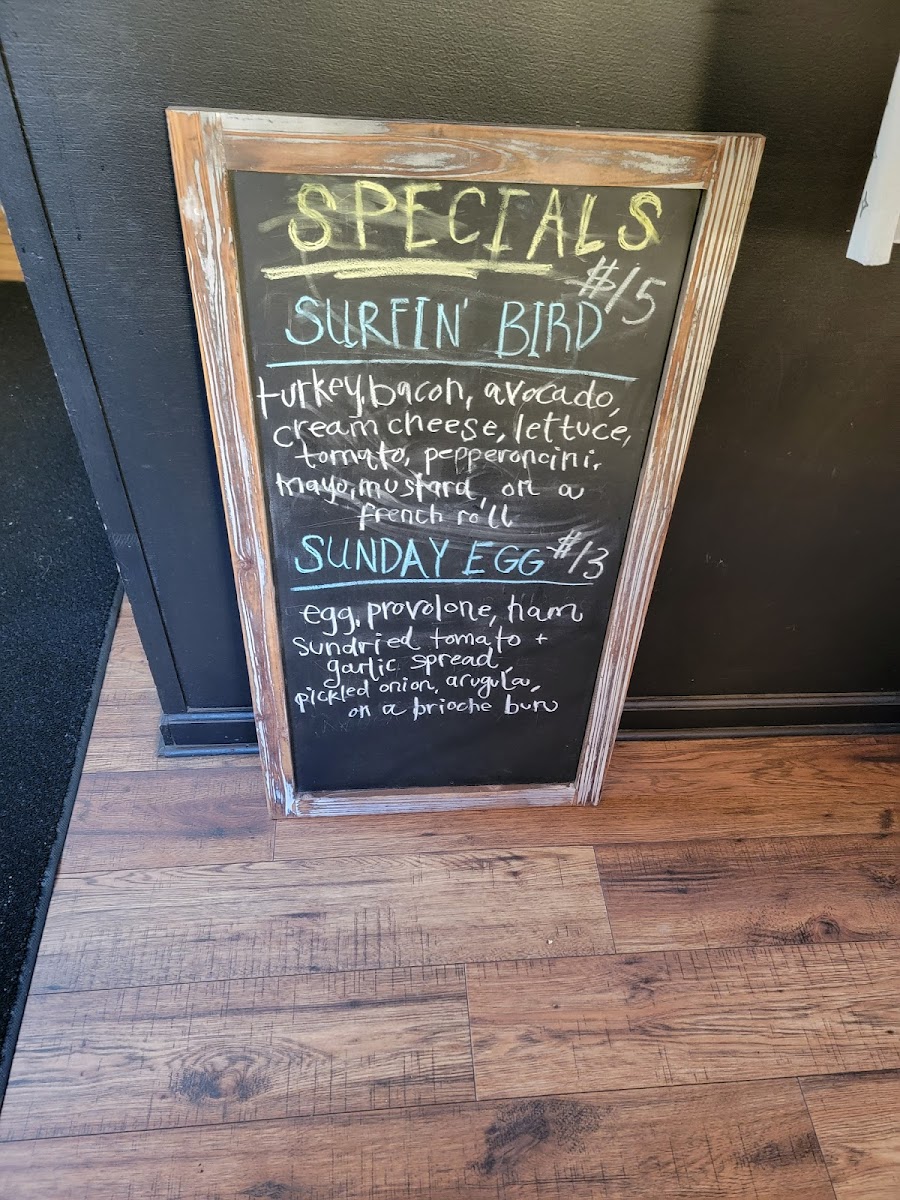 SPECIALS
#15
SURFIN' BIRD
turkey, bacon, avocado,
cream cheese, lettuce,
tomato, pepperoncini,
mayo, mustard, on a
french roll
SUNDAY EGG #13
egg, provolone, ham
sundried tomato +
garlic spread,
pickled onion, arugula,
on a brioche bun